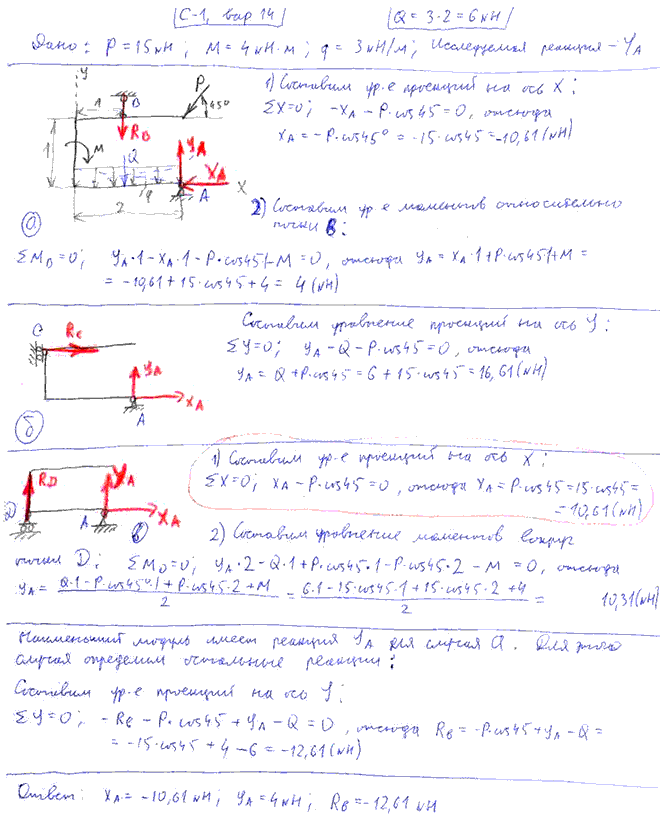 С-1, вар 14
Q = 3·2 = 6 кН
Дано: P = 15кН; M = 4кН·м; q = 3кН/м; Исследуемая реакция – YA
y
1
B
P
45°
RB
1
M
Q
YA
XA
A
X
q
2
а
1) Составим ур-е проекций на ось X:
ΣX=0; -XA - P·cos45 = 0, отсюда
XA = -P·cos45° = -15·cos45 = -10,61 (кН)
2) Составим ур-е моментов относительно
точки B:
ΣMB=0; YA·1 - XA·1 - P·cos45·1 - M = 0, отсюда YA = XA·1 + P·cos45·1 + M =
= -10,61 + 15·cos45 + 4 = 4 (кН)
C
RC
YA
XA
A
б
Составим уравнение проекций на ось Y:
ΣY=0; YA - Q - P·cos45 = 0, отсюда
YA = Q + P·cos45 = 6 + 15·cos45 = 16,61 (кН)
RD
YA
D
A
XA
в
1) Составим ур-е проекций на ось X:
ΣX=0; XA - P·cos45 = 0, отсюда XA = P·cos45 = 15·cos45 =
= 10,61 (кН)
2) Составим уравнение моментов вокруг
точки D: ΣMD=0; YA·2 - Q·1 + P·cos45·1 - P·cos45·2 - M = 0, отсюда
YA = Q·1 - P·cos45°·1 + P·cos45·2 + M / 2 = 6·1 - 15·cos45·1 + 15·cos45·2 + 4 / 2 = 10,31 (кН)
Наименьший модуль имеет реакция YA для случая а. Для этого
случая определим остальные реакции:
Составим ур-е проекций на ось Y:
ΣY=0; -RB - P·cos45 + YA - Q = 0, отсюда RB = -P·cos45 + YA - Q =
= -15·cos45 + 4 - 6 = -12,61 (кН)
Ответ: XA = -10,61 кН; YA = 4кН; RB = -12,61 кН